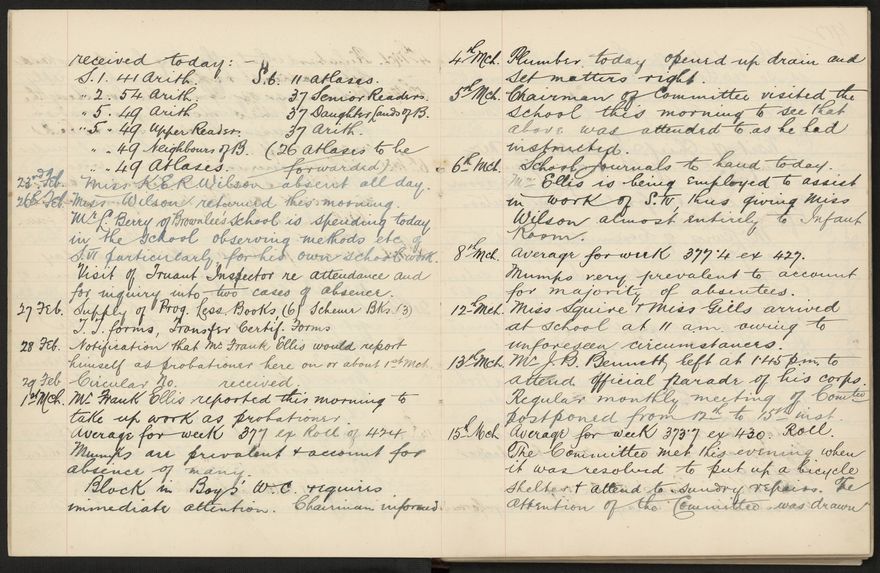 received today: -
S.1. 41 Arith. S.6. 11 atlases.
" 2. 54 Arith. 37 Senior Readers.
" 5. 49 Arith 37 Daughter Lands of B.
" 5. 49 Upper Reader. 37 Arith.
" 49 Neighbours of B. (26 Atlases to be
" 49 Atlases. forwarded).
23rd Feb. Miss K.E.R. Wilson absent all day.
26th Feb. Miss Wilson returned this morning.
Mr L. Berry of Brownlee's School is spending today
in the School observing methods etc. of
S.VI particularly for his own school's work.
Visit of Truant Inspector re attendance and
for inquiry into two cases of absence.
27 Feb. Supply of Prog. Less. Books, (6) Scheme Bks. (3)
T.T. forms, Transfer Certif. Forms
28 Feb. Notification that Mr Frank Ellis would report
himself as probationer here on or about 1st Mch.
29 Feb Circular No. received.
1st Mch. Mr Frank Ellis reported this morning to
take up work as probationer.
Average for week 377 ex Roll of 424.
Mumps are prevalent & account for
absence of many.
Block in Boys' W.C. requires
immediate attention. Chairman informed.
4th Mch. Plumber today opened up drain and
set matters right.
5th Mch. Chairman of Committee visited the
School this morning to see that
above was attended to as he had
instructed.
6th Mch. School Journals to hand today.
Mr Ellis is being employed to assist
in work of S.IV thus giving Miss
Wilson almost entirely to Infant
Room.
8th Mch. Average for week 377.4 ex 427.
Mumps very prevalent to account
for majority of absentees.
12th Mch. Miss Squire & Miss Gills arrived
at School at 11 am owing to
unforeseen circumstances.
13th Mch. Mr J.B. Bennett left at 1.45 p.m. to
attend official parade of his corps.
Regular monthly meeting of Comtee
postponed from 12th to 15th inst.
15th Mch Average for week 373.7 ex 430. Roll.
The Committee met this evening when
it was resolved to put up a bicycle
shelter & attend to sundry repairs. The
attention of the Committee was drawn